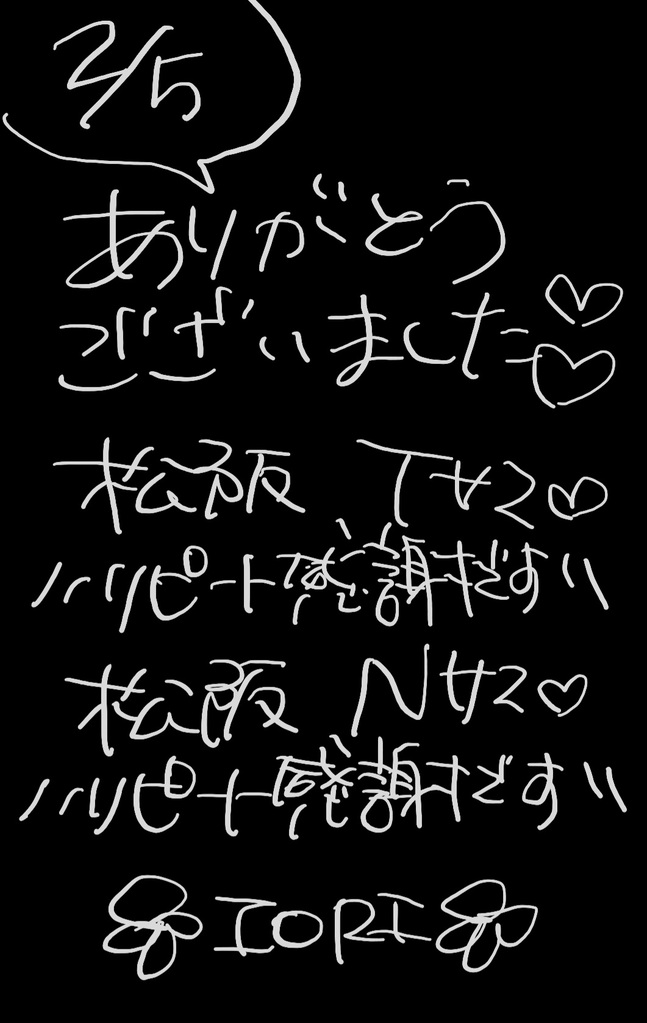 2/5
ありがとう
ございました♡♡
松阪 Tサマ♡
\\リピート感謝です//
松阪 Nサマ♡
\\リピート感謝です//
IORI